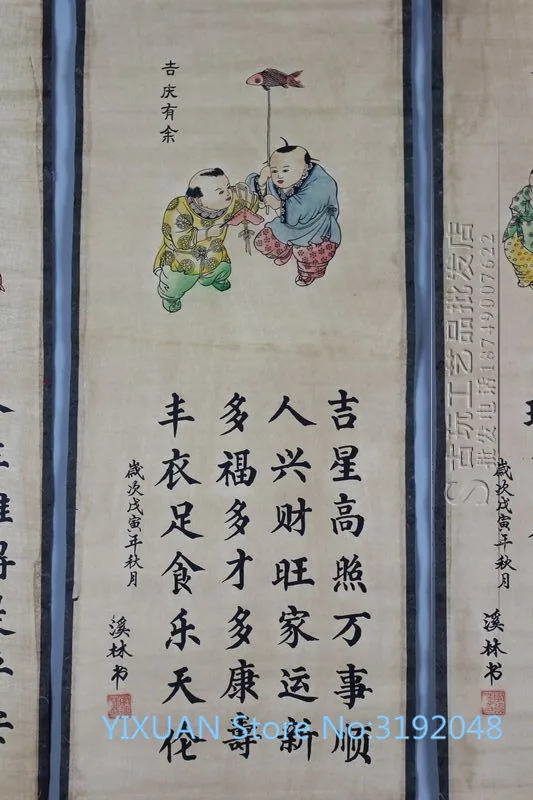 吉庆有余
吉星高照万事顺
人兴财旺家运新
多福多才多康寿
丰衣足食乐天伦
歲次戊寅年秋月
溪林书
歲次戊寅年秋月
溪林书
S古玩工艺品批发店
批发电话18749007622
YIXUAN Store No:3192048